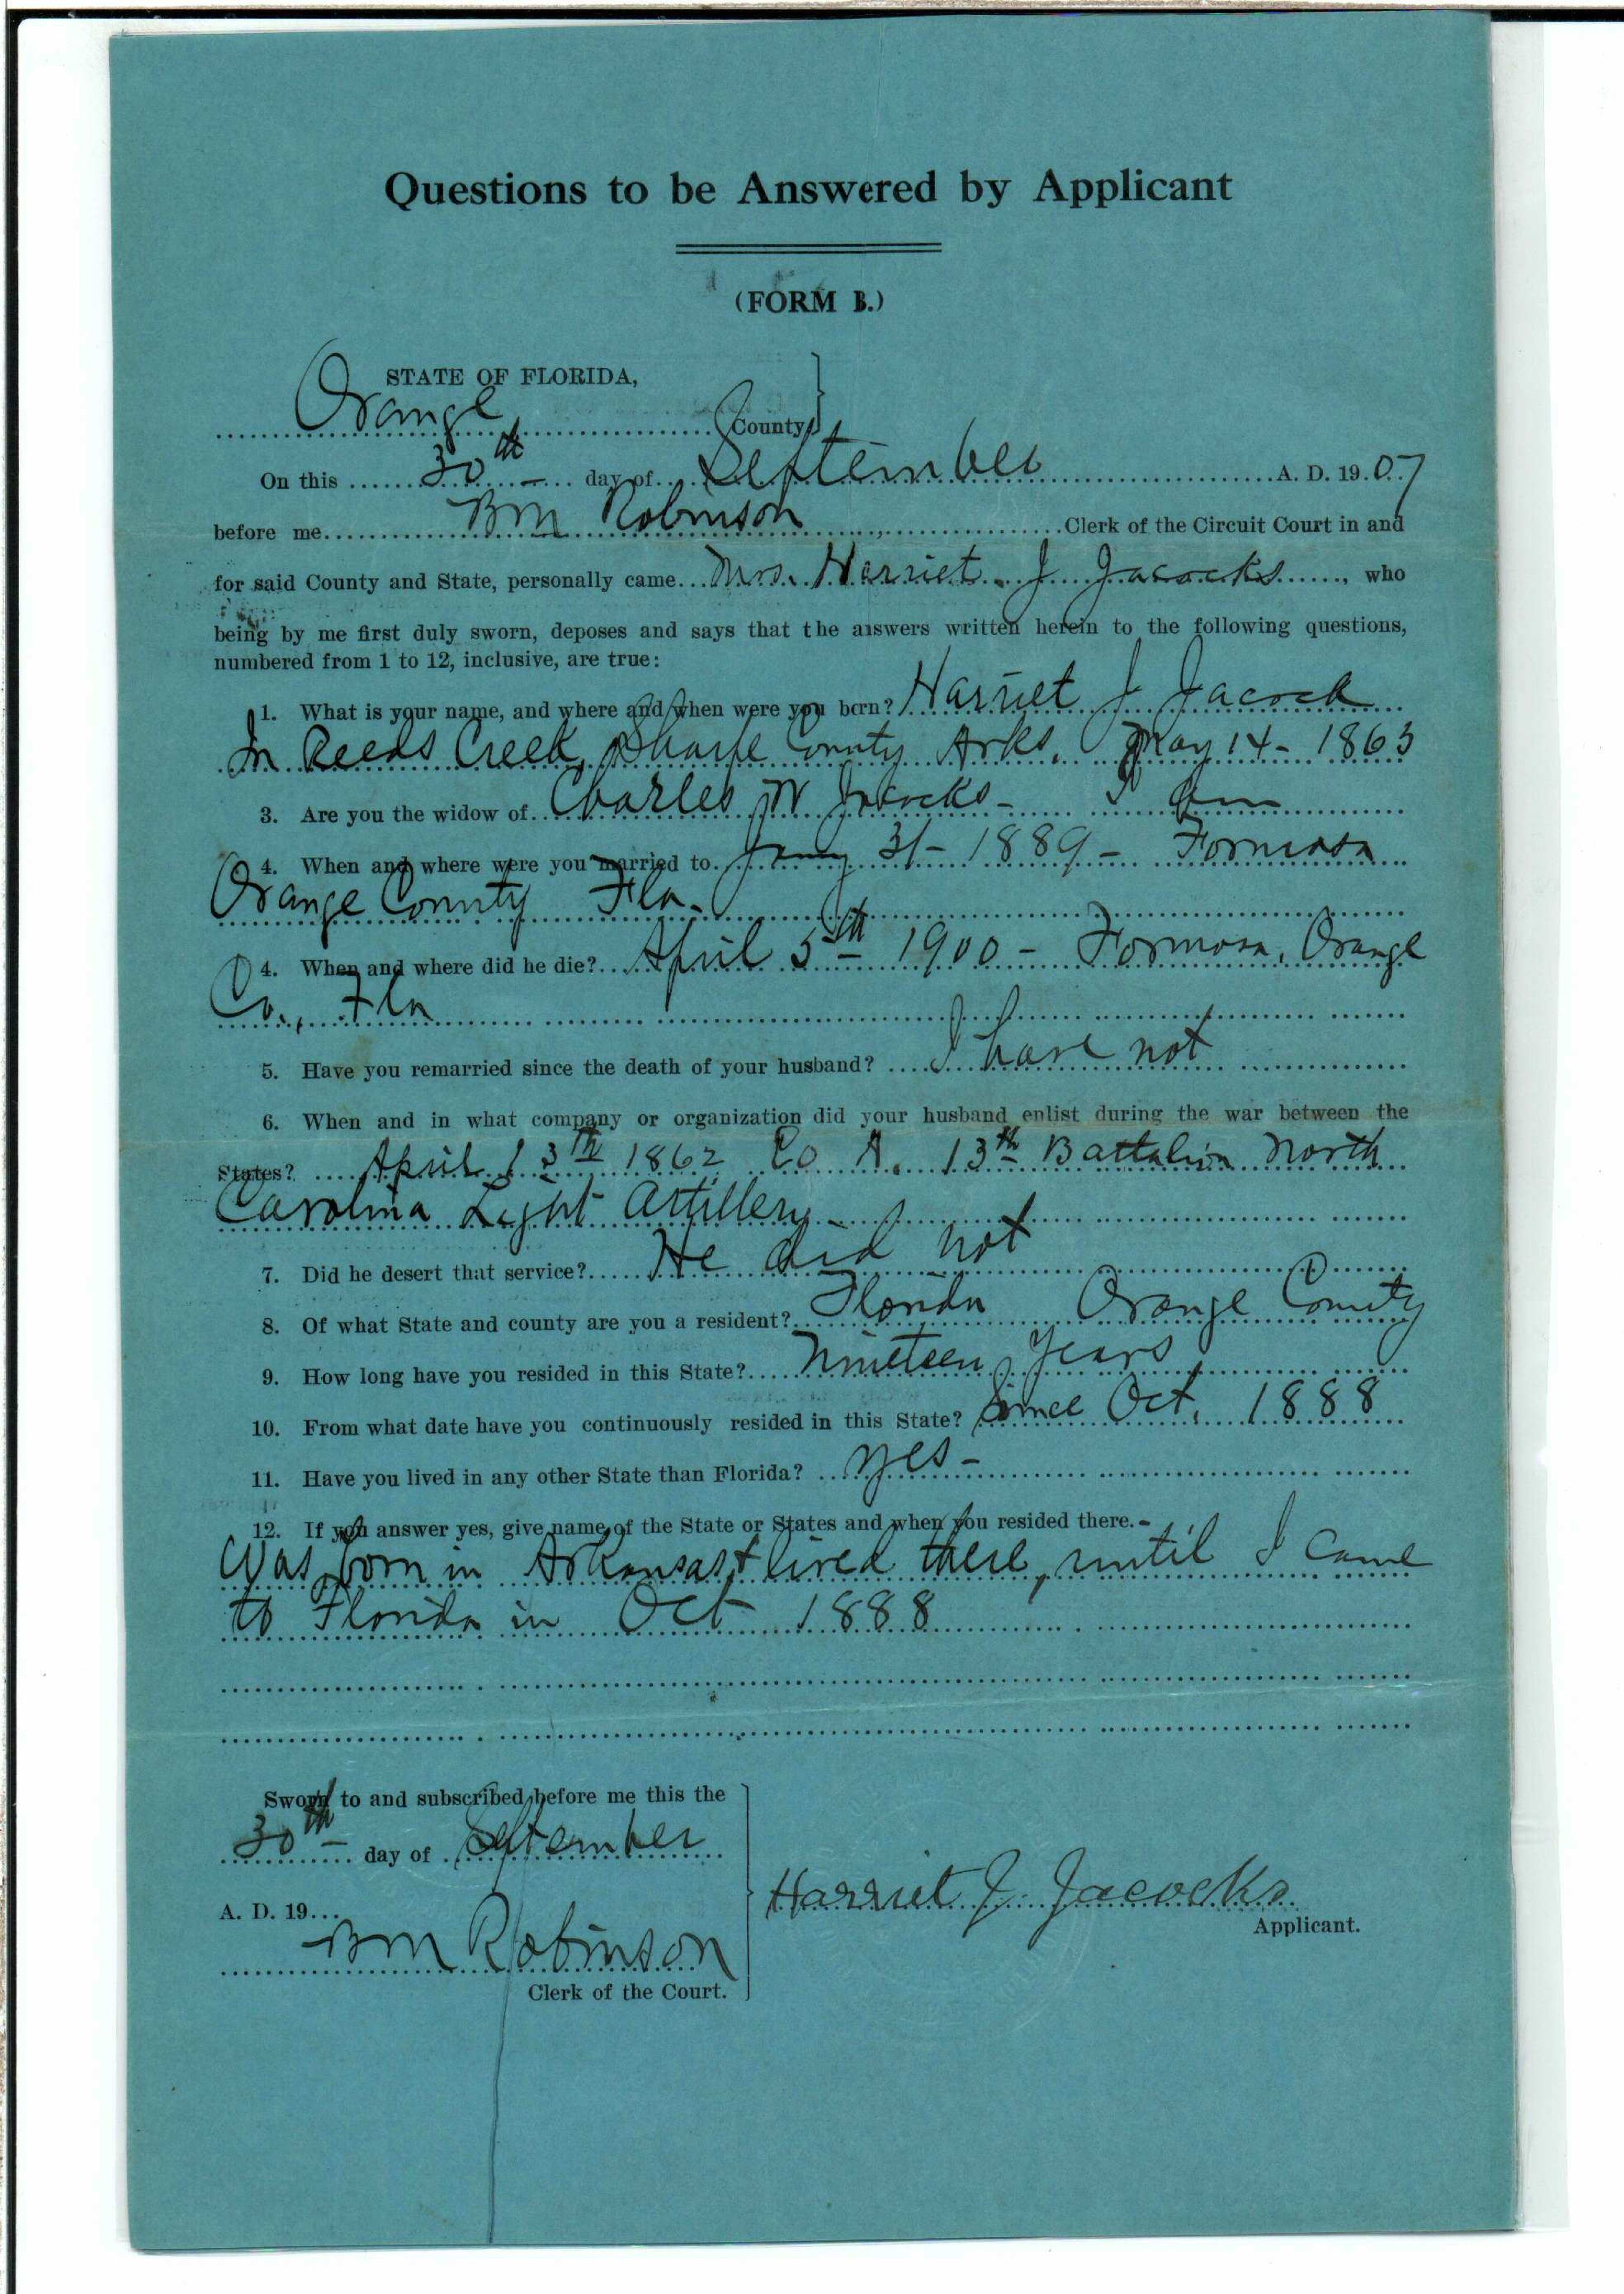 Questions to be Answered by Applicant
(FORM B.)
STATE OF FLORIDA,
Orange County
On this 30th day of September A. D. 1907
before me BM Robinson Clerk of the Circuit Court in and
for said County and State, personally came Mrs. Harriet J Jacocks, who
being by me first duly sworn, deposes and says that the answers written herein to the following questions,
numbered from 1 to 12, inclusive, are true:
1. What is your name, and where and when were you born? Harriet J Jacock
In Reeds Creek, Sharpe County Arks. May 14 - 1863
3. Are you the widow of Charles W Jacocks - I am
4. When and where were you married to Jany 31 - 1889 - Formosa
Orange County Fla.
4. When and where did he die? April 5th 1900 - Formosa, Orange
Co., Fla
5. Have you remarried since the death of your husband? I have not
6. When and in what company or organization did your husband enlist during the war between the
States? April 13th 1862 Co A. 13th Battalion North
Carolina Light Artillery -
7. Did he desert that service? He did not
8. Of what State and county are you a resident? Florida Orange County
9. How long have you resided in this State? Nineteen years
10. From what date have you continuously resided in this State? Since Oct, 1888
11. Have you lived in any other State than Florida? Yes -
12. If you answer yes, give name of the State or States and when you resided there. -
Was born in Arkansas & lived there, until I came
to Florida in Oct 1888
Sworn to and subscribed before me this the
30th day of September
A. D. 19
BM Robinson
Clerk of the Court.
Harriet J. Jacocks
Applicant.